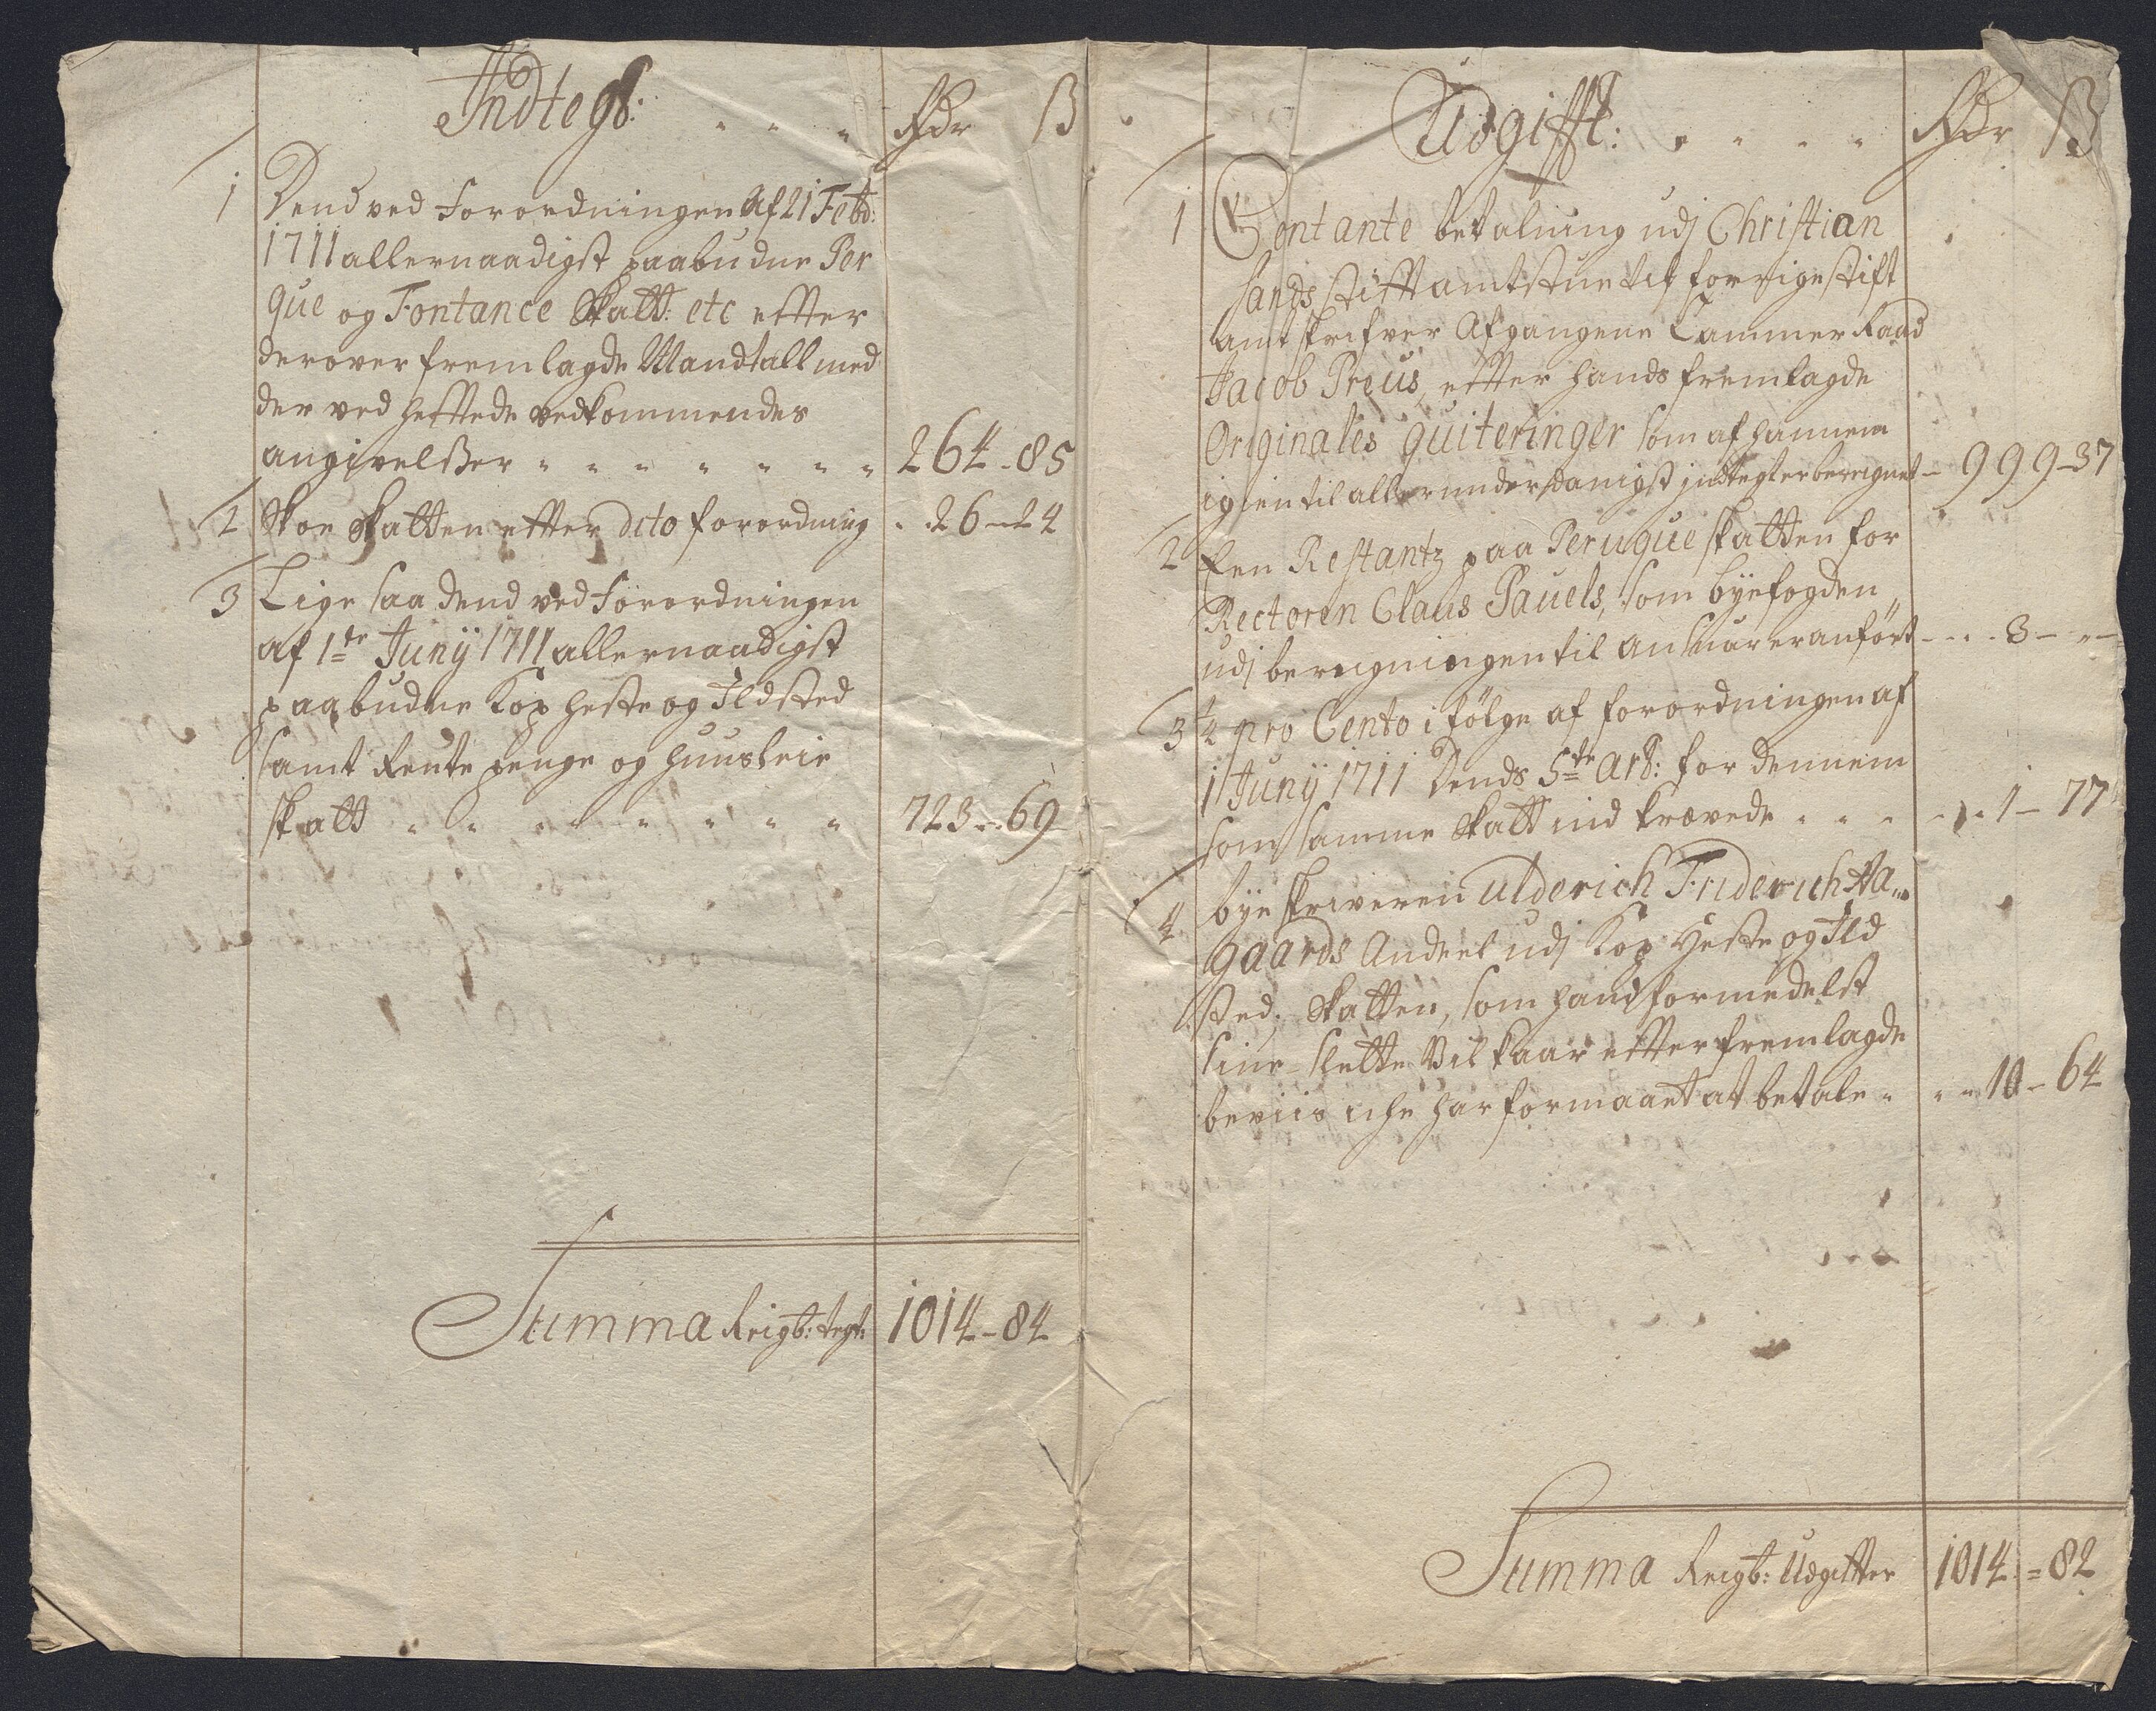 Indtegt: Rdr ß
1 Dend ved Forordningen Af 21 Febr:
1711 allernaadigst paabudne Per
que og Fontance Skatt: etc effter
derover fremlagde Mandtall med
der ved hefftede vedkommendes
angivelßer 264-85
2 Skoe Skatten effter dito forordning 26-24
3 Lige saa dend ved Forordningen
af 1te Junÿ 1711 allernaadigst
paabudne Kop heste og Ildsted
samt Rente penge og huusleie
skatt 723-69
Summa 1014-84
Udgifft: Rdr ß
1 Contante betalning udj Christian
sands stifftamtstue til forrige stift
amtskrifver Afgangene Cammer Raad
Jacob Preus, effter hands fremlagde
Originales quiteringer som af hannem
igien til allerunderdanigst indtegt er beregnet 999-37
2 Een Restantz paa Peruque skatten for
Rectoren Claus Pauels, som byefogden
udj beregningen til Ansvar er anført 3
3 ¼ pro Cento i følge af forordningen af
1 Junÿ 1711 Dends 5te Art: for dennem
som samme Skatt ind krævede 1-77
4 bye skriveren Ulderich Friderich Aa
gaards Andeel udj Kop Heste og Ild
sted. Skatten, som hand formedelst
sine slette Vilkaar effter fremlagde
beviis iche har formaaet at betale 10-64
Summa Udgiffter 1014=82